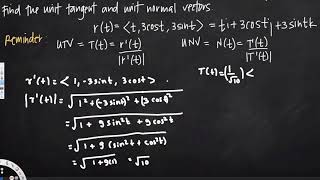 Find the unit tangent and unit normal vectors.
r(t) = <t, 3cost, 3sint> = ti + 3costj + 3sintk
Reminder: UTV = T(t) = r'(t) / |r'(t)| UNV = N(t) = T'(t) / |T'(t)|
r'(t) = < 1, -3sint, 3cost > T(t) = (1/√10) <
|r'(t)| = √(1² + (-3sint)² + (3cost)²)
= √(1 + 9sin²t + 9cos²t)
= √(1 + 9(sin²t + cos²t))
= √(1 + 9(1)) = √10